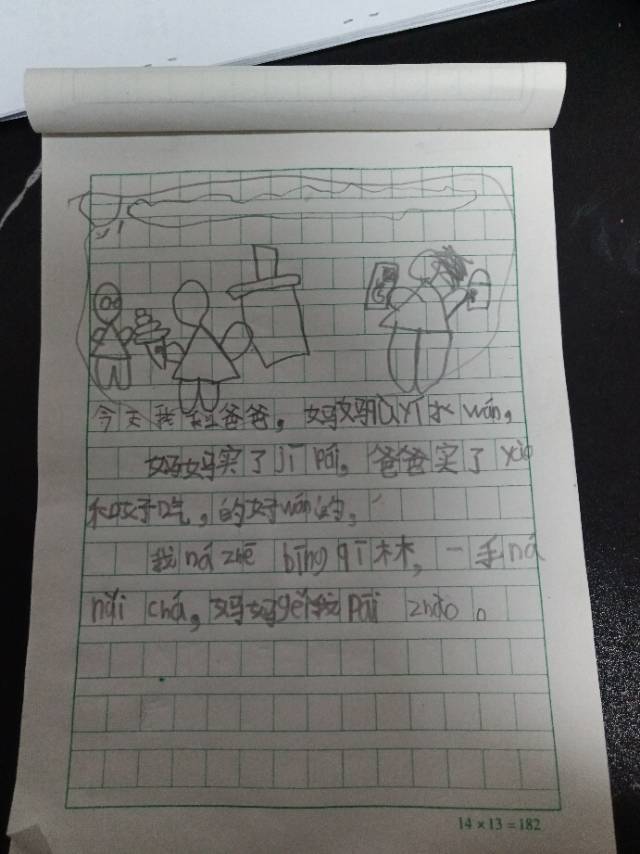 今天我和爸爸,妈妈qù yī水wán,
妈妈买了jī pái,爸爸买了yào
和好吃,的好wán的,
我ná zhē bīng qī林,一手ná
nǎi chá,妈妈gěi我pāi zhào。
14×13=182